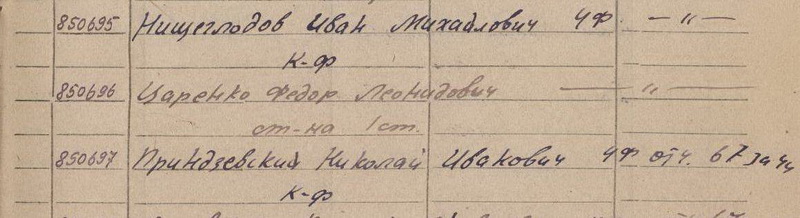 850695 Нищеглодов Иван Михайлович ЧФ — " —
к-ф
850696 Царенко Федор Леонидович — " —
ст-на 1 ст.
850697 Приндзевский Николай Иванович ЧФ от ч. 67
к-ф